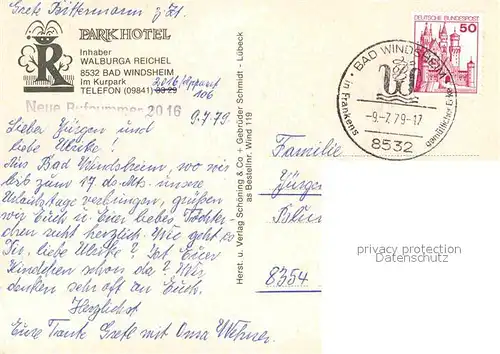 Grete Büttermann z. Zt.
PARKHOTEL
Inhaber
WALBURGA REICHEL
8532 BAD WINDSHEIM
Im Kurpark
TELEFON (09841)
2016/Appart
106
Neue Rufnummer 2016
9.7.79
Lieber Jürgen und
liebe Ulrike!
Aus Bad Windsheim, wo wir
bis zum 17. ds. Mts. unsere
Urlaubstage verbringen, grüßen
wir Euch u. Euer liebes Töchter-
chen recht herzlich. Wie geht es
Dir, liebe Ulrike? Ist Euer
Kindchen schon da? Wir
denken sehr oft an Euch.
Herzlichst
Eure Tante Gretl mit Oma
Herst. u. Verlag Schöning & Co + Gebrüder Schmidt - Lübeck
as Bestellnr. Wind 119
DEUTSCHE BUNDESPOST
50
BAD WINDSHEIM
in Frankens
-9.-7.79-17
8532
Familie
Jürgen
8354
privacy protection
Datenschutz